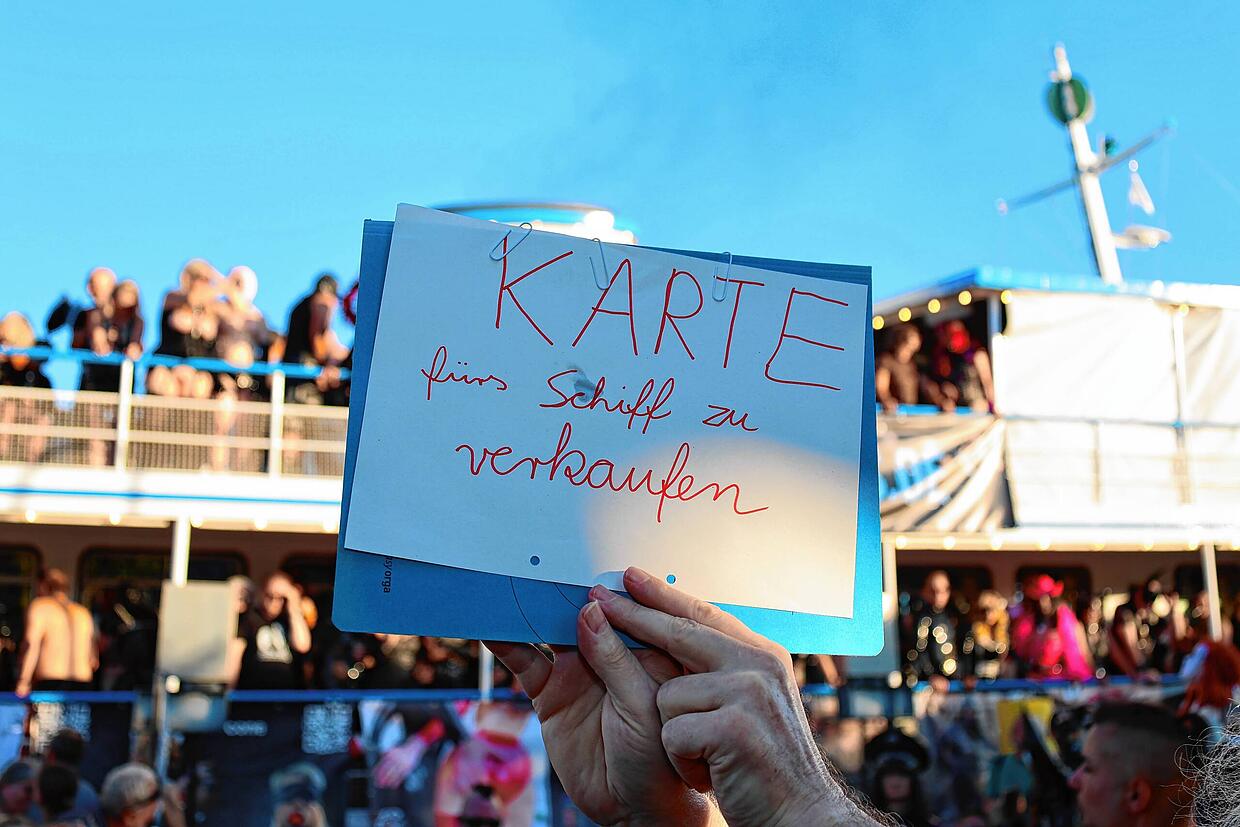 KARTE
fürs Schiff zu
verkaufen